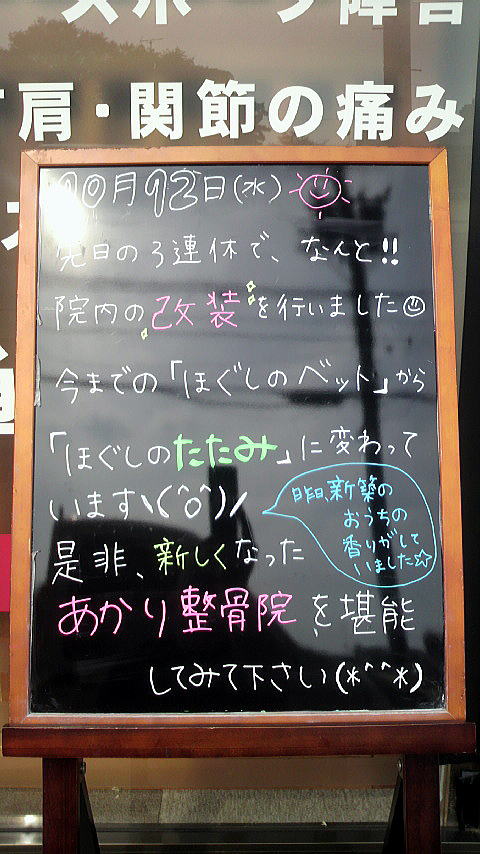 スポーツ障害
肩・関節の痛み
10月12日(水)
先日の3連休で、なんと!!
院内の改装を行いました☺
今までの「ほぐしのベット」から
「ほぐしのたたみ」に変わって
います\(^o^)/
昨日、新築の
おうちの
香りがして
いました☆
是非、新しくなった
あかり整骨院を堪能
してみて下さい(*^^*)